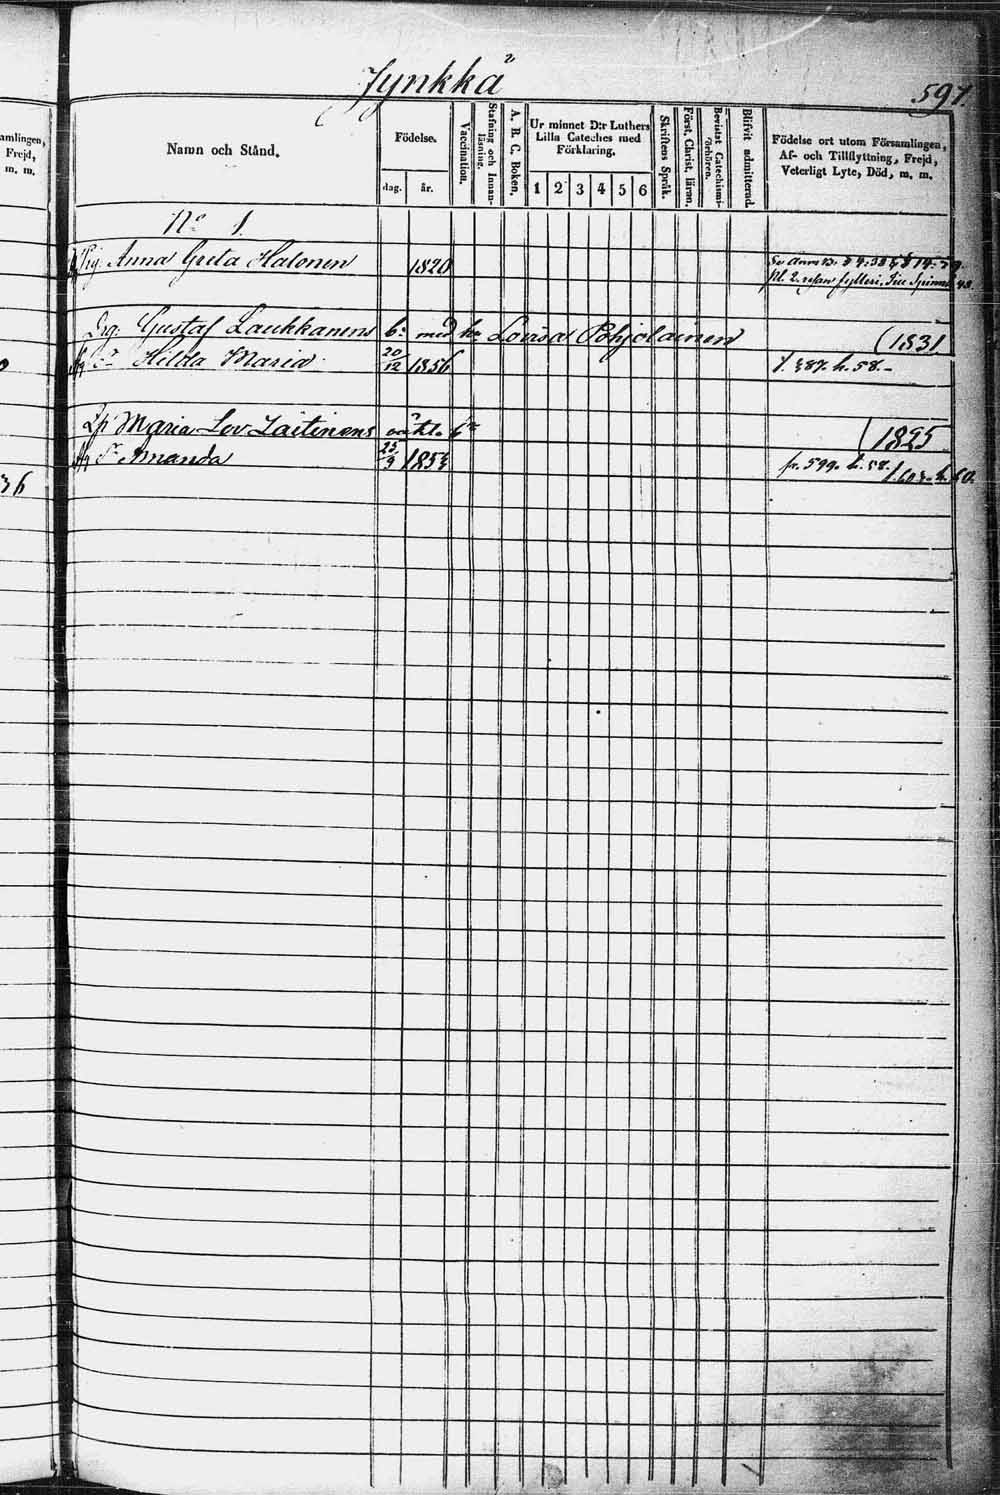 Jynkkä
597.
amlingen,
Frejd,
m. m.
Namn och Stånd.
Födelse.
dag.
år.
Vaccination.
Stafning och Innan-
läsning.
A. B. C. Boken.
Ur minnet D:r Luthers
Lilla Cateches med
Förklaring.
1 2 3 4 5 6
Skriftens Språk.
Först. Christ. läran.
Bevistat Catechismi-
förhören.
Blifvit admitterad.
Födelse ort utom Församlingen,
Af- och Tillflyttning, Frejd,
Veterligt Lyte, Död, m. m.
No 1.
Pig. Anna Greta Halonen 1820
Drg. Gustaf Laukkanens b: med h. Lovisa Pohjolainen (1831
Hilda Maria 20/12 1856 f. 587. h. 58.
Maria Lov. Laitinens oäkt. b: (1825
Amanda 1853 fr. 599. h. 58.
36